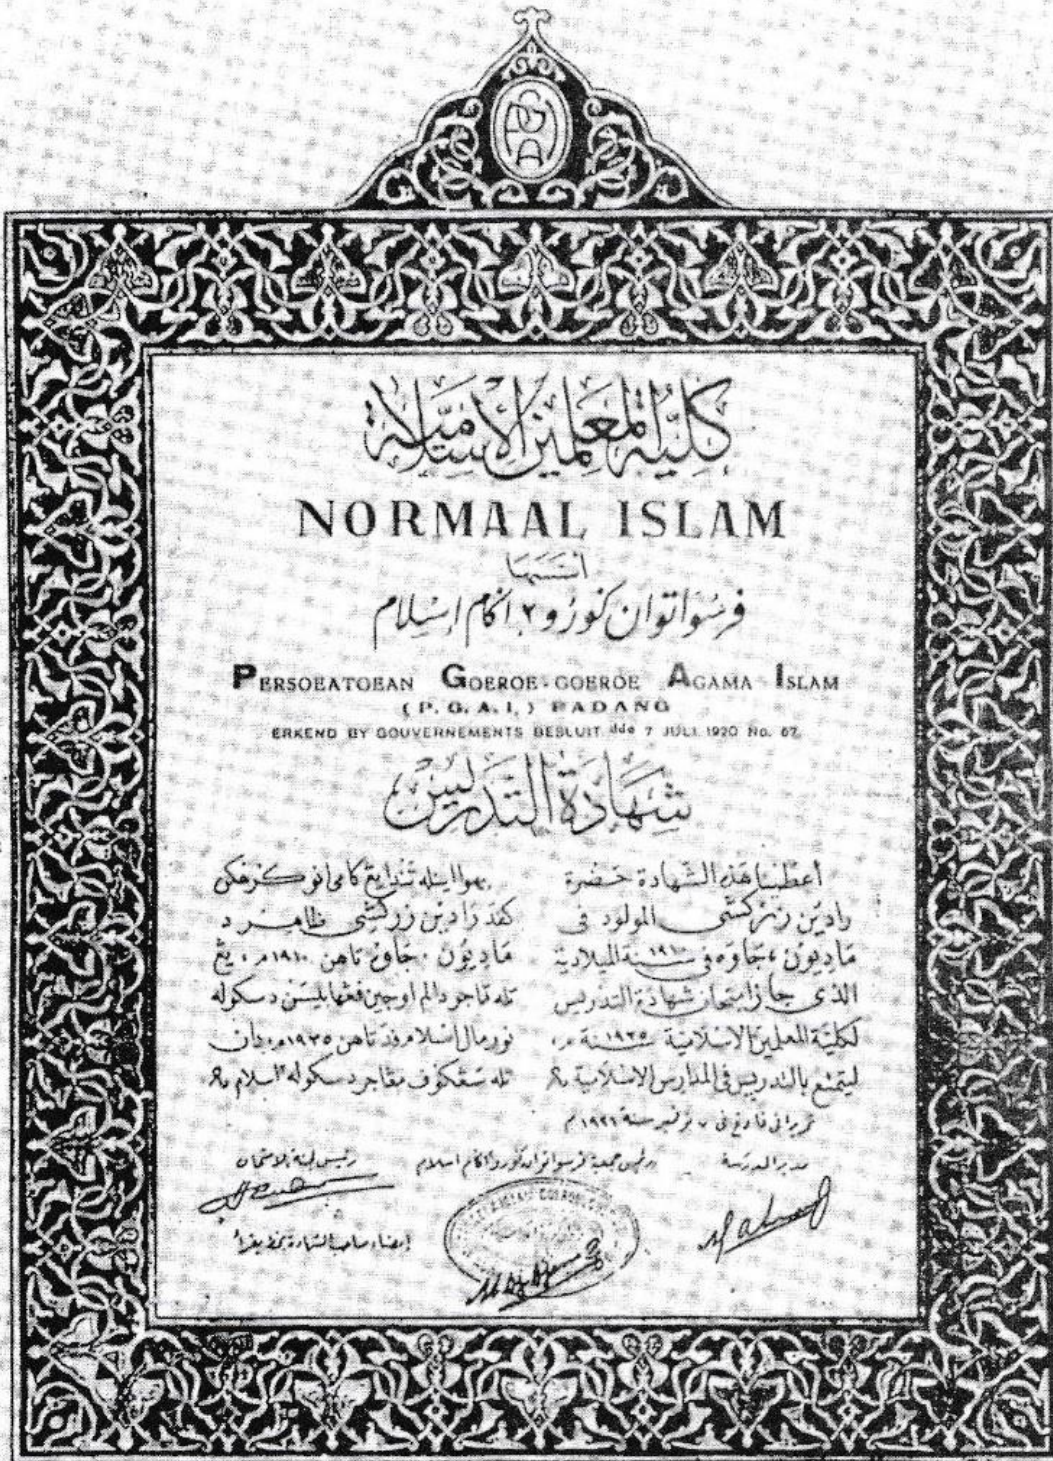 PGAI
كلية المعلمين الإسلامية
NORMAAL ISLAM
اسستها
فرسواتوان كورو٢ اكام إسلام
PERSOEATOEAN GOEROE-GOEROE AGAMA ISLAM
(P. G. A. I.) PADANG
ERKEND BY GOUVERNEMENTS BESLUIT ddo 7 JULI 1920 No. 67.
شهادة التدريس
أعطينا هذه الشهادة حضرة
رادين زركشى المولود فى
ماديون، جاوه فى سنة ١٩١٠ الميلادية
الذى جاز امتحان شهادة التدريس
لكلية المعلمين الاسلامية سنة ١٩٣٥ م،
ليتمتع بالتدريس فى المدارس الاسلامية
بهوا اينله تندا يڠ كامى
كفد رادين زركشى ظاهر د
ماديون، جاوه تاهن ١٩١٠م، يڠ
تله دالم اوجين د سكوله
نورمال اسلام فد تاهن ١٩٣٥م، دان
تله سڠكوف مڠاجر د سكوله٢ اسلام
فى سنة م
مدير المدرسة
رئيس جمعية فرسواتوان كورو٢ اكام اسلام
رئيس لجنة الامتحان
إمضاء صاحب الشهادة
GOEROE